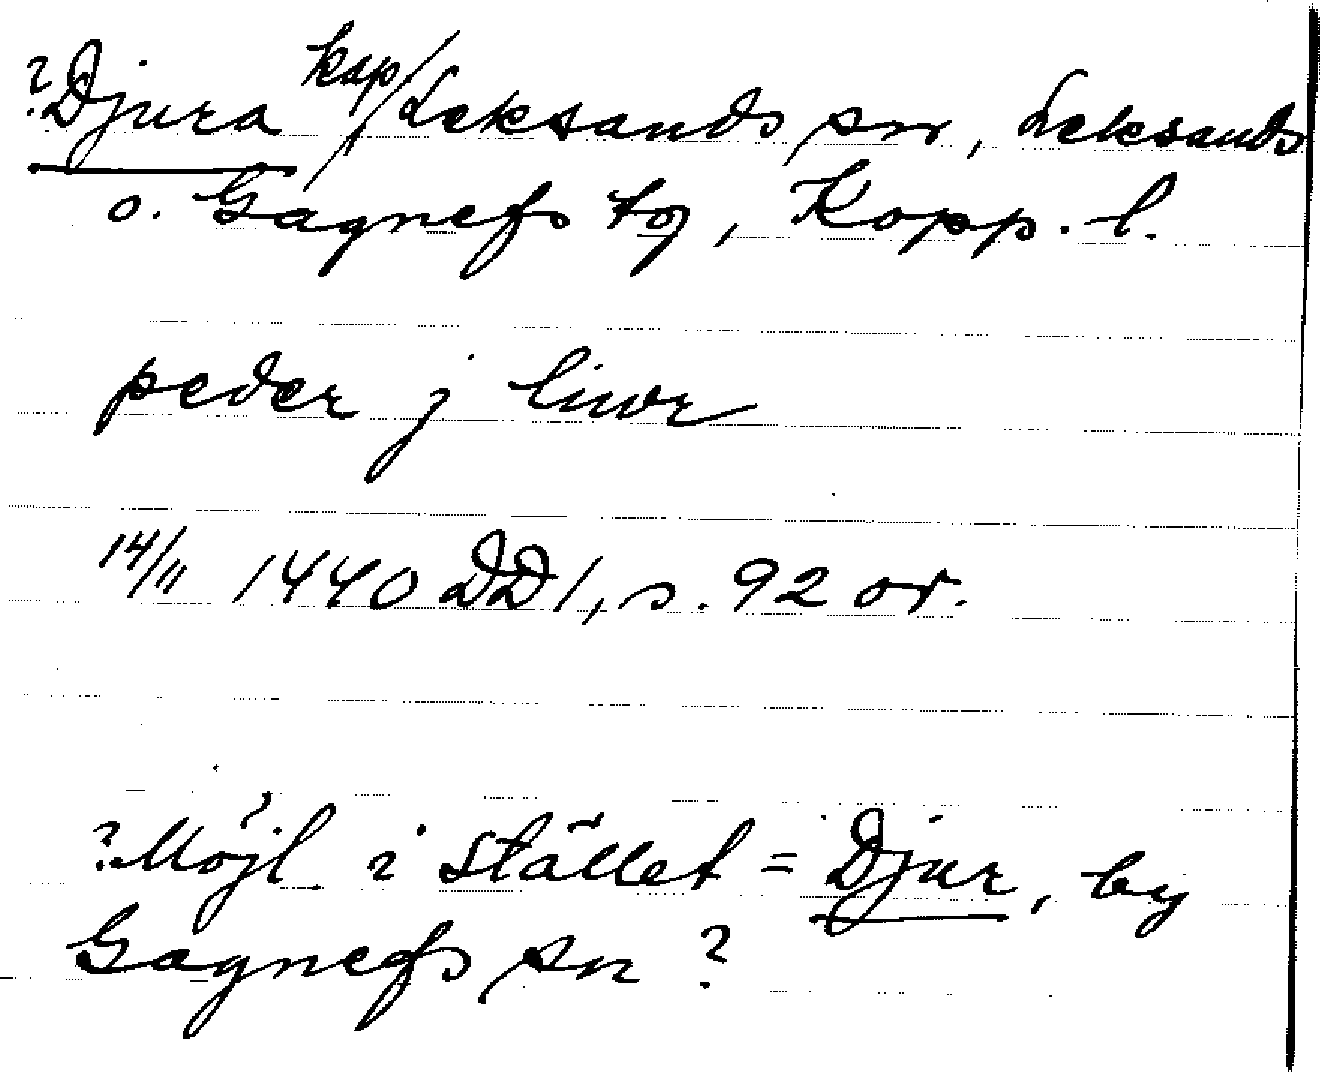 ?Djura kap/Leksands sn, Leksands
o. Gagnefs tg, Kopp. l.
peder j liwr
14/11 1440 DD 1, s. 92 or.
?Möjl i stället = Djur, by
Gagnefs sn ?